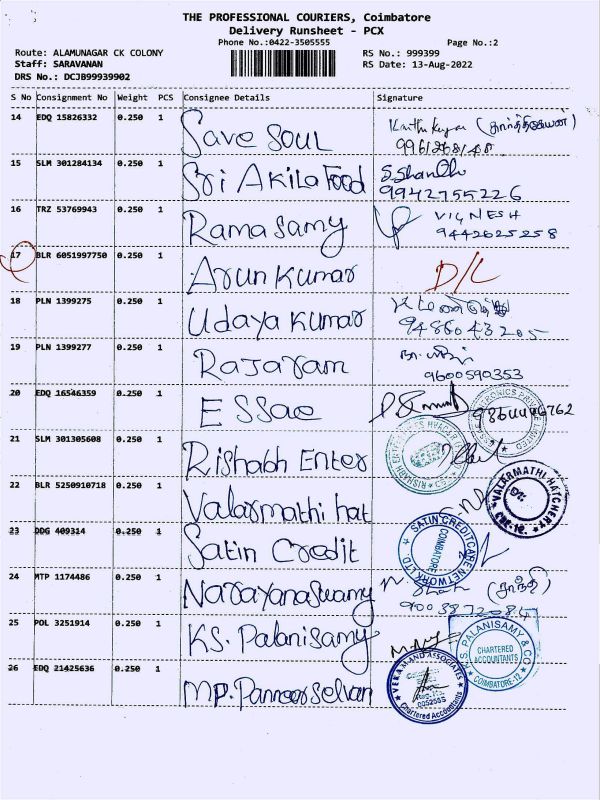 THE PROFESSIONAL COURIERS, Coimbatore
Delivery Runsheet - PCX
Phone No.:0422-3505555 Page No.:2
Route: ALAMUNAGAR CK COLONY RS No.: 999399
Staff: SARAVANAN RS Date: 13-Aug-2022
DRS No.: DCJB99939902
S No Consignment No Weight PCS Consignee Details Signature
14 EDQ 15826332 0.250 1 Save Soul
15 SLM 301284134 0.250 1 Sri Akila Food S. Shanthi
9942755226
16 TRZ 53769943 0.250 1 Ramasamy VIGNESH
9442625258
17 BLR 6051997750 0.250 1 Arun Kumar D/L
18 PLN 1399275 0.250 1 Udaya Kumar
19 PLN 1399277 0.250 1 Rajaram
9600590353
20 EDQ 16546359 0.250 1 ESSae
21 SLM 301305608 0.250 1 Rishabh Enter
22 BLR 5250910718 0.250 1 Valarmathi hat
VALARMATHI HATCHERY
23 DDG 409314 0.250 1 Satin Credit
SATIN CREDITCARE NETWORK LTD.
COIMBATORE
24 MTP 1174486 0.250 1 Narayanaswamy (சாந்தி)
25 POL 3251914 0.250 1 KS. Palanisamy
K.S. PALANISAMY & CO
CHARTERED
ACCOUNTANTS
COIMBATORE-12
26 EDQ 21425636 0.250 1 MP. Panneerselvan
Chartered Accountants